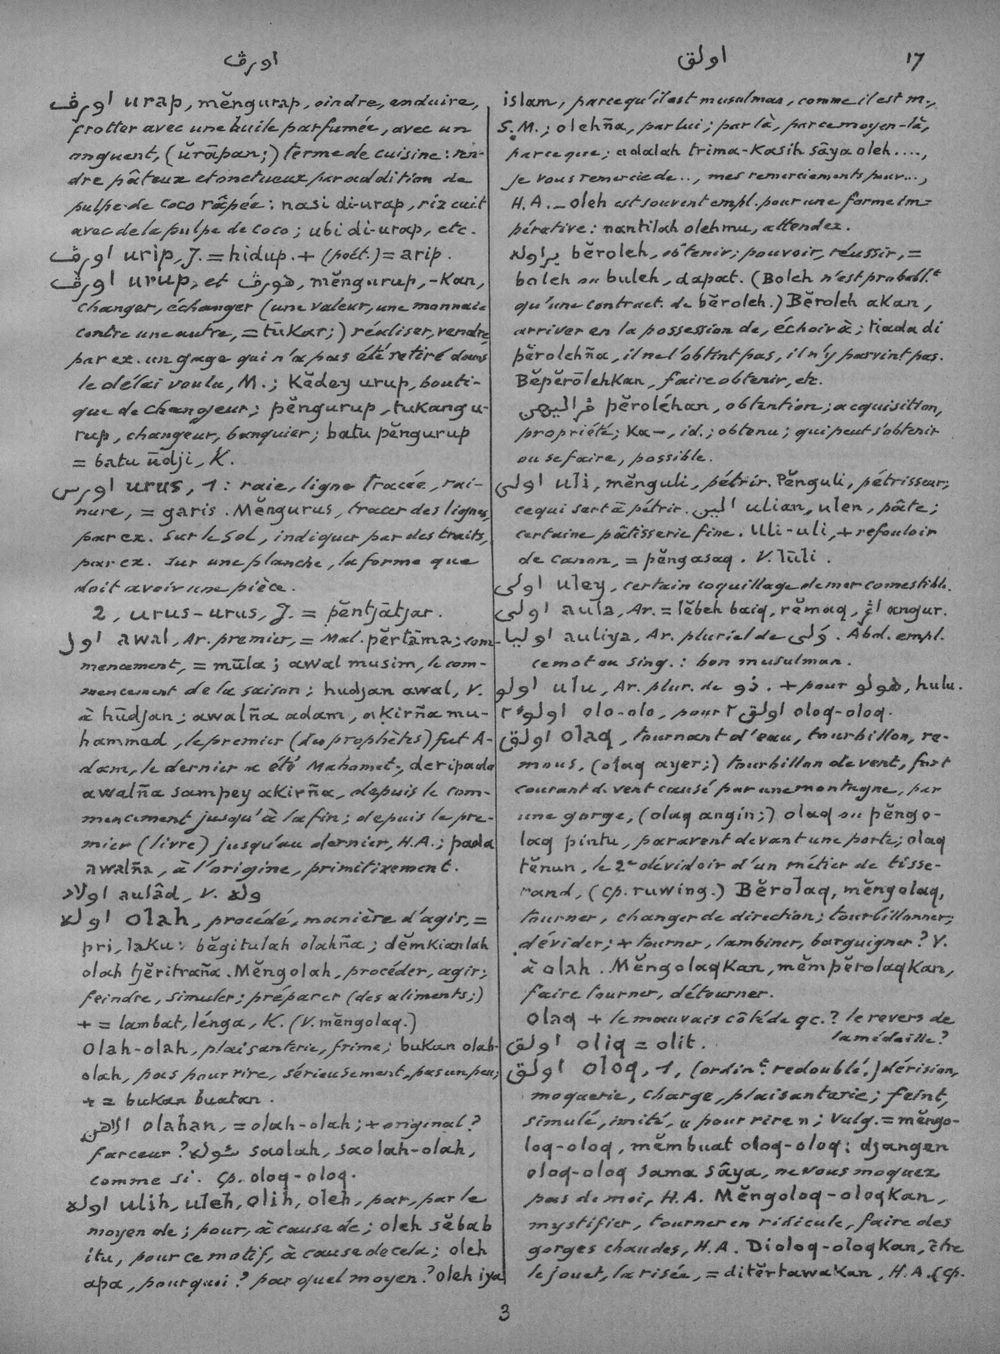 اورڤ
اولق
17
اورڤ urap, mĕngurap, oindre, enduire,
frotter avec une huile parfumée, avec un
onguent, (ŭrāpan;) terme de cuisine: ren-
dre pâteux et onctueux par addition de
pulpe de coco râpée: nasi di-urap, riz cuit
avec de la pulpe de coco; ubi di-urap, etc.
اورڤ urip, J. = hidup. + (poét.) = arip.
اورڤ urup, et هورڤ, mĕngurup, -kan,
changer, échanger (une valeur, une monnaie
contre une autre, = tūkar;) réaliser, vendre
par ex. un gage qui n'a pas été retiré dans
le délai voulu, M.; Kĕdey urup, bouti-
que de changeur; pĕngurup, tukang u-
rup, changeur, banquier; batu pĕngurup
= batu ūdji, K.
اورس urus, 1: raie, ligne tracée, rai-
nure, = garis. Mĕngurus, tracer des lignes,
par ex. sur le sol, indiquer par des traits,
par ex. sur une planche, la forme que
doit avoir une pièce.
2, urus-urus, J. = pĕntjātjar.
اول awal, Ar. premier, = Mal. pĕrtāma; com-
mencement, = mūla; awal musim, le com-
mencement de la saison; hudjan awal, V.
à hūdjan; awalña adam, akirña mu-
hammed, le premier (des prophètes) fut A-
dam, le dernier a été Mahomet; deripada
awalña sampey akirña, depuis le com-
mencement jusqu'à la fin; depuis le pre-
mier (livre) jusqu'au dernier, H.A.; pada
awalña, à l'origine, primitivement.
اولاد aulâd, V. ولد
اوله olah, procédé, manière d'agir, =
pri, laku: bĕgitulah olahña; dĕmkianlah
olah tjĕritraña. Mĕngolah, procéder, agir;
feindre, simuler; préparer (des aliments;)
+ = lambat, lénga, K. (V. mĕngolaq.)
Olah-olah, plaisanterie, frime; bukan olah-
olah, pas pour rire, sérieusement, pas un peu;
+ = bukan buatan.
olahan, = olah-olah; + original?
farceur? سئوله saolah, saolah-olah,
comme si. Cp. oloq-oloq.
اوله ulih, uleh, olih, oleh, par, par le
moyen de; pour, à cause de; oleh sĕbab
itu, pour ce motif, à cause de cela; oleh
apa, pourquoi? par quel moyen? oleh iya
islam, parce qu'il est musulman, comme il est m.,
S.M.; olehña, par lui; par là, par ce moyen-là,
parce que; adalah trima-kasih sâya oleh....,
je vous remercie de.., mes remerciements pour...,
H.A. _ oleh est souvent empl. pour une forme im-
pérative: nantilah olehmu, attendez.
براوله bĕroleh, obtenir; pouvoir, réussir, =
boleh ou buleh, dapat. (Boleh n'est probablt
qu'une contract. de bĕroleh.) Bĕroleh akan,
arriver en la possession de, échoir à; tiada di
pĕrolehña, il ne l'obtint pas, il n'y parvint pas.
Bĕpĕrōlehkan, faire obtenir, etc.
pĕroléhan, obtention; acquisition,
propriété; Ka-, id.; obtenu; qui peut s'obtenir
ou se faire, possible.
اولى uli, mĕnguli, pétrir. Pĕnguli, pétrisseur;
ce qui sert à pétrir. الين ulian, ulen, pâte;
certaine pâtisserie fine. Uli-uli, + refouloir
de canon, = pĕngasaq. V. lūli.
اولى uley, certain coquillage de mer comestible.
اولى aula, Ar. = lĕbeh baiq, rĕmaq, اڠر angur.
اوليا auliya, Ar. pluriel de وَلى. Abd. empl.
ce mot au sing.: bon musulman.
اولو ulu, Ar. plur. de ذو. + pour هولو, hulu.
اولو٢ olo-olo, pour اولق٢ oloq-oloq.
اولق olaq, tournant d'eau, tourbillon, re-
mous, (olaq ayer;) tourbillon de vent, fort
courant de vent causé par une montagne, par
une gorge, (olaq angin;) olaq ou pĕngo-
laq pintu, paravent devant une porte; olaq
tĕnun, le 2e dévidoir d'un métier de tisse-
rand, (cp. ruwing.) Bĕrolaq, mĕngolaq,
tourner, changer de direction; tourbillonner;
dévider; + tourner, lambiner, barguigner? V.
à olah. Mĕngolaqkan, mĕmpĕrolaqkan,
faire tourner, détourner.
Olaq + le mauvais côté de qc.? le revers de
la médaille?
اولق oliq = olit.
اولق oloq, 1, (ordint redoublé,) dérision,
moquerie, charge, plaisanterie; feint,
simulé, imité, « pour rire »; vulg. = mĕngo-
loq-oloq, mĕmbuat oloq-oloq; djangan
oloq-oloq sama sâya, ne vous moquez
pas de moi, H.A. Mĕngoloq-oloqkan,
mystifier, tourner en ridicule, faire des
gorges chaudes, H.A. Dioloq-oloqkan, être
le jouet, la risée, = ditĕrtawakan, H.A. (Cp.
3